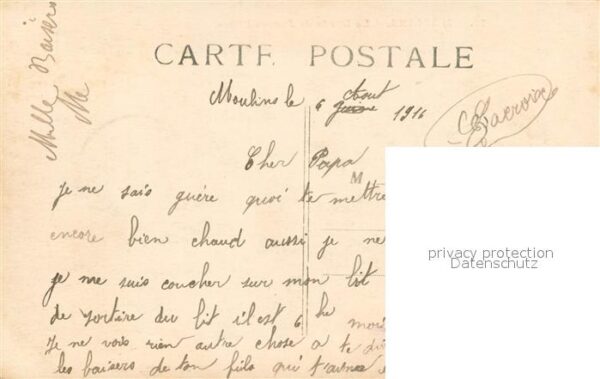 Mille Baisers
CARTE POSTALE
Moulins le 6 Aout 1916
Lacroix
Cher Papa
M
je ne sais guère quoi te mettre
encore bien chaud aussi je ne
je me suis coucher sur mon lit
de sortire du lit il est 6 he
Je ne vois rien autre chose a te
les baisers de ton fils qui t'aime
privacy protection
Datenschutz